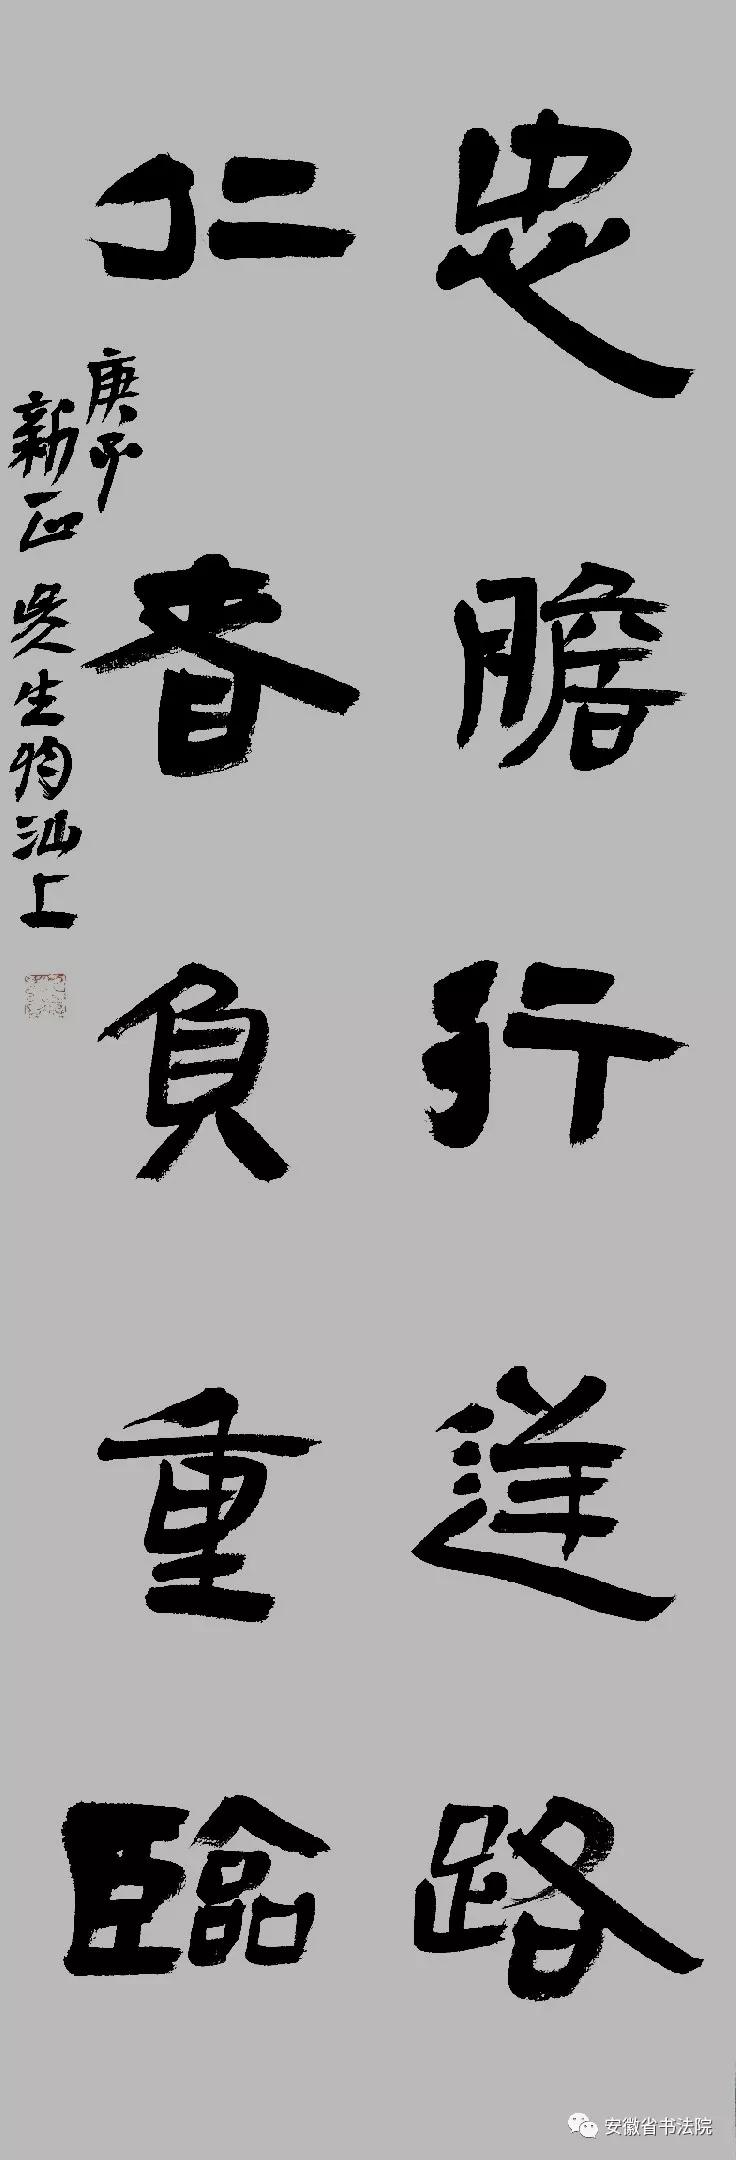 忠膽行逆路
仁者負重臨
庚子
新正 上
安徽省书法院